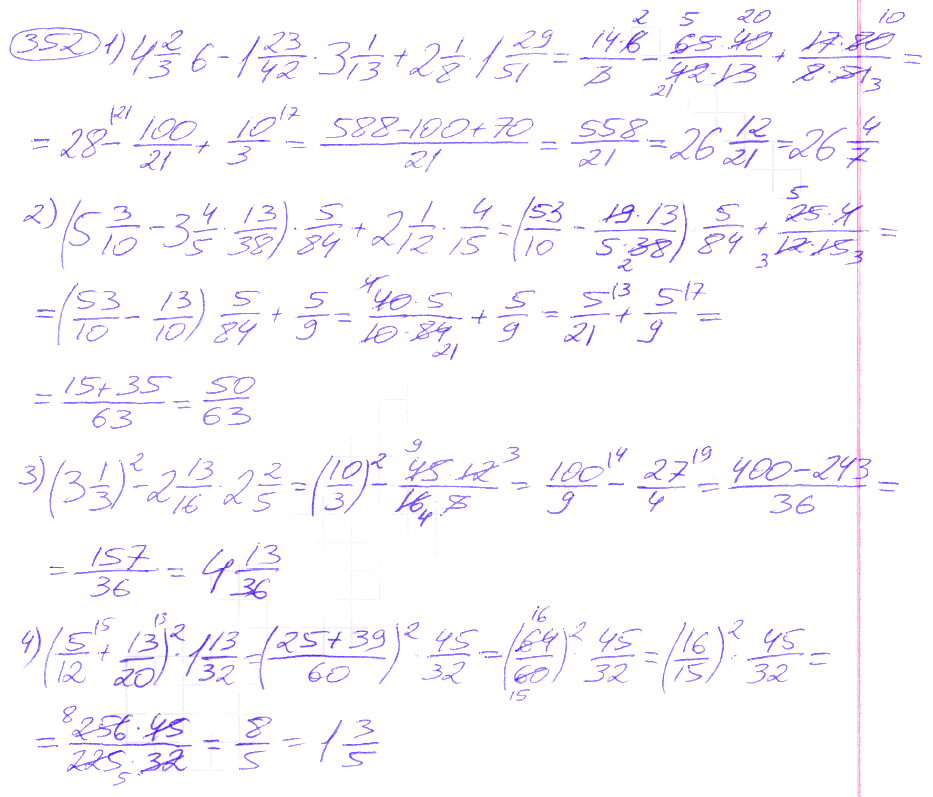 352 1) 4 2/3 6 - 1 23/42 · 3 1/13 + 2 1/8 · 1 29/51 = 14·6/3 - 65·40/42·13 + 17·80/8·51 =
= 28 - 100/21 + 10/3 = 588-100+70/21 = 558/21 = 26 12/21 = 26 4/7
2) (5 3/10 - 3 4/5 · 13/38) · 5/84 + 2 1/12 · 4/15 = (53/10 - 19·13/5·38) 5/84 + 25·4/12·15 =
= (53/10 - 13/10) 5/84 + 5/9 = 40·5/10·84 + 5/9 = 5/21 + 5/9 =
= 15+35/63 = 50/63
3) (3 1/3)² - 2 13/16 · 2 2/5 = (10/3)² - 45·12/16·5 = 100/9 - 27/4 = 400-243/36 =
= 157/36 = 4 13/36
4) (5/12 + 13/20)² · 1 13/32 = (25+39/60)² · 45/32 = (64/60)² · 45/32 = (16/15)² · 45/32 =
= 256·45/225·32 = 8/5 = 1 3/5